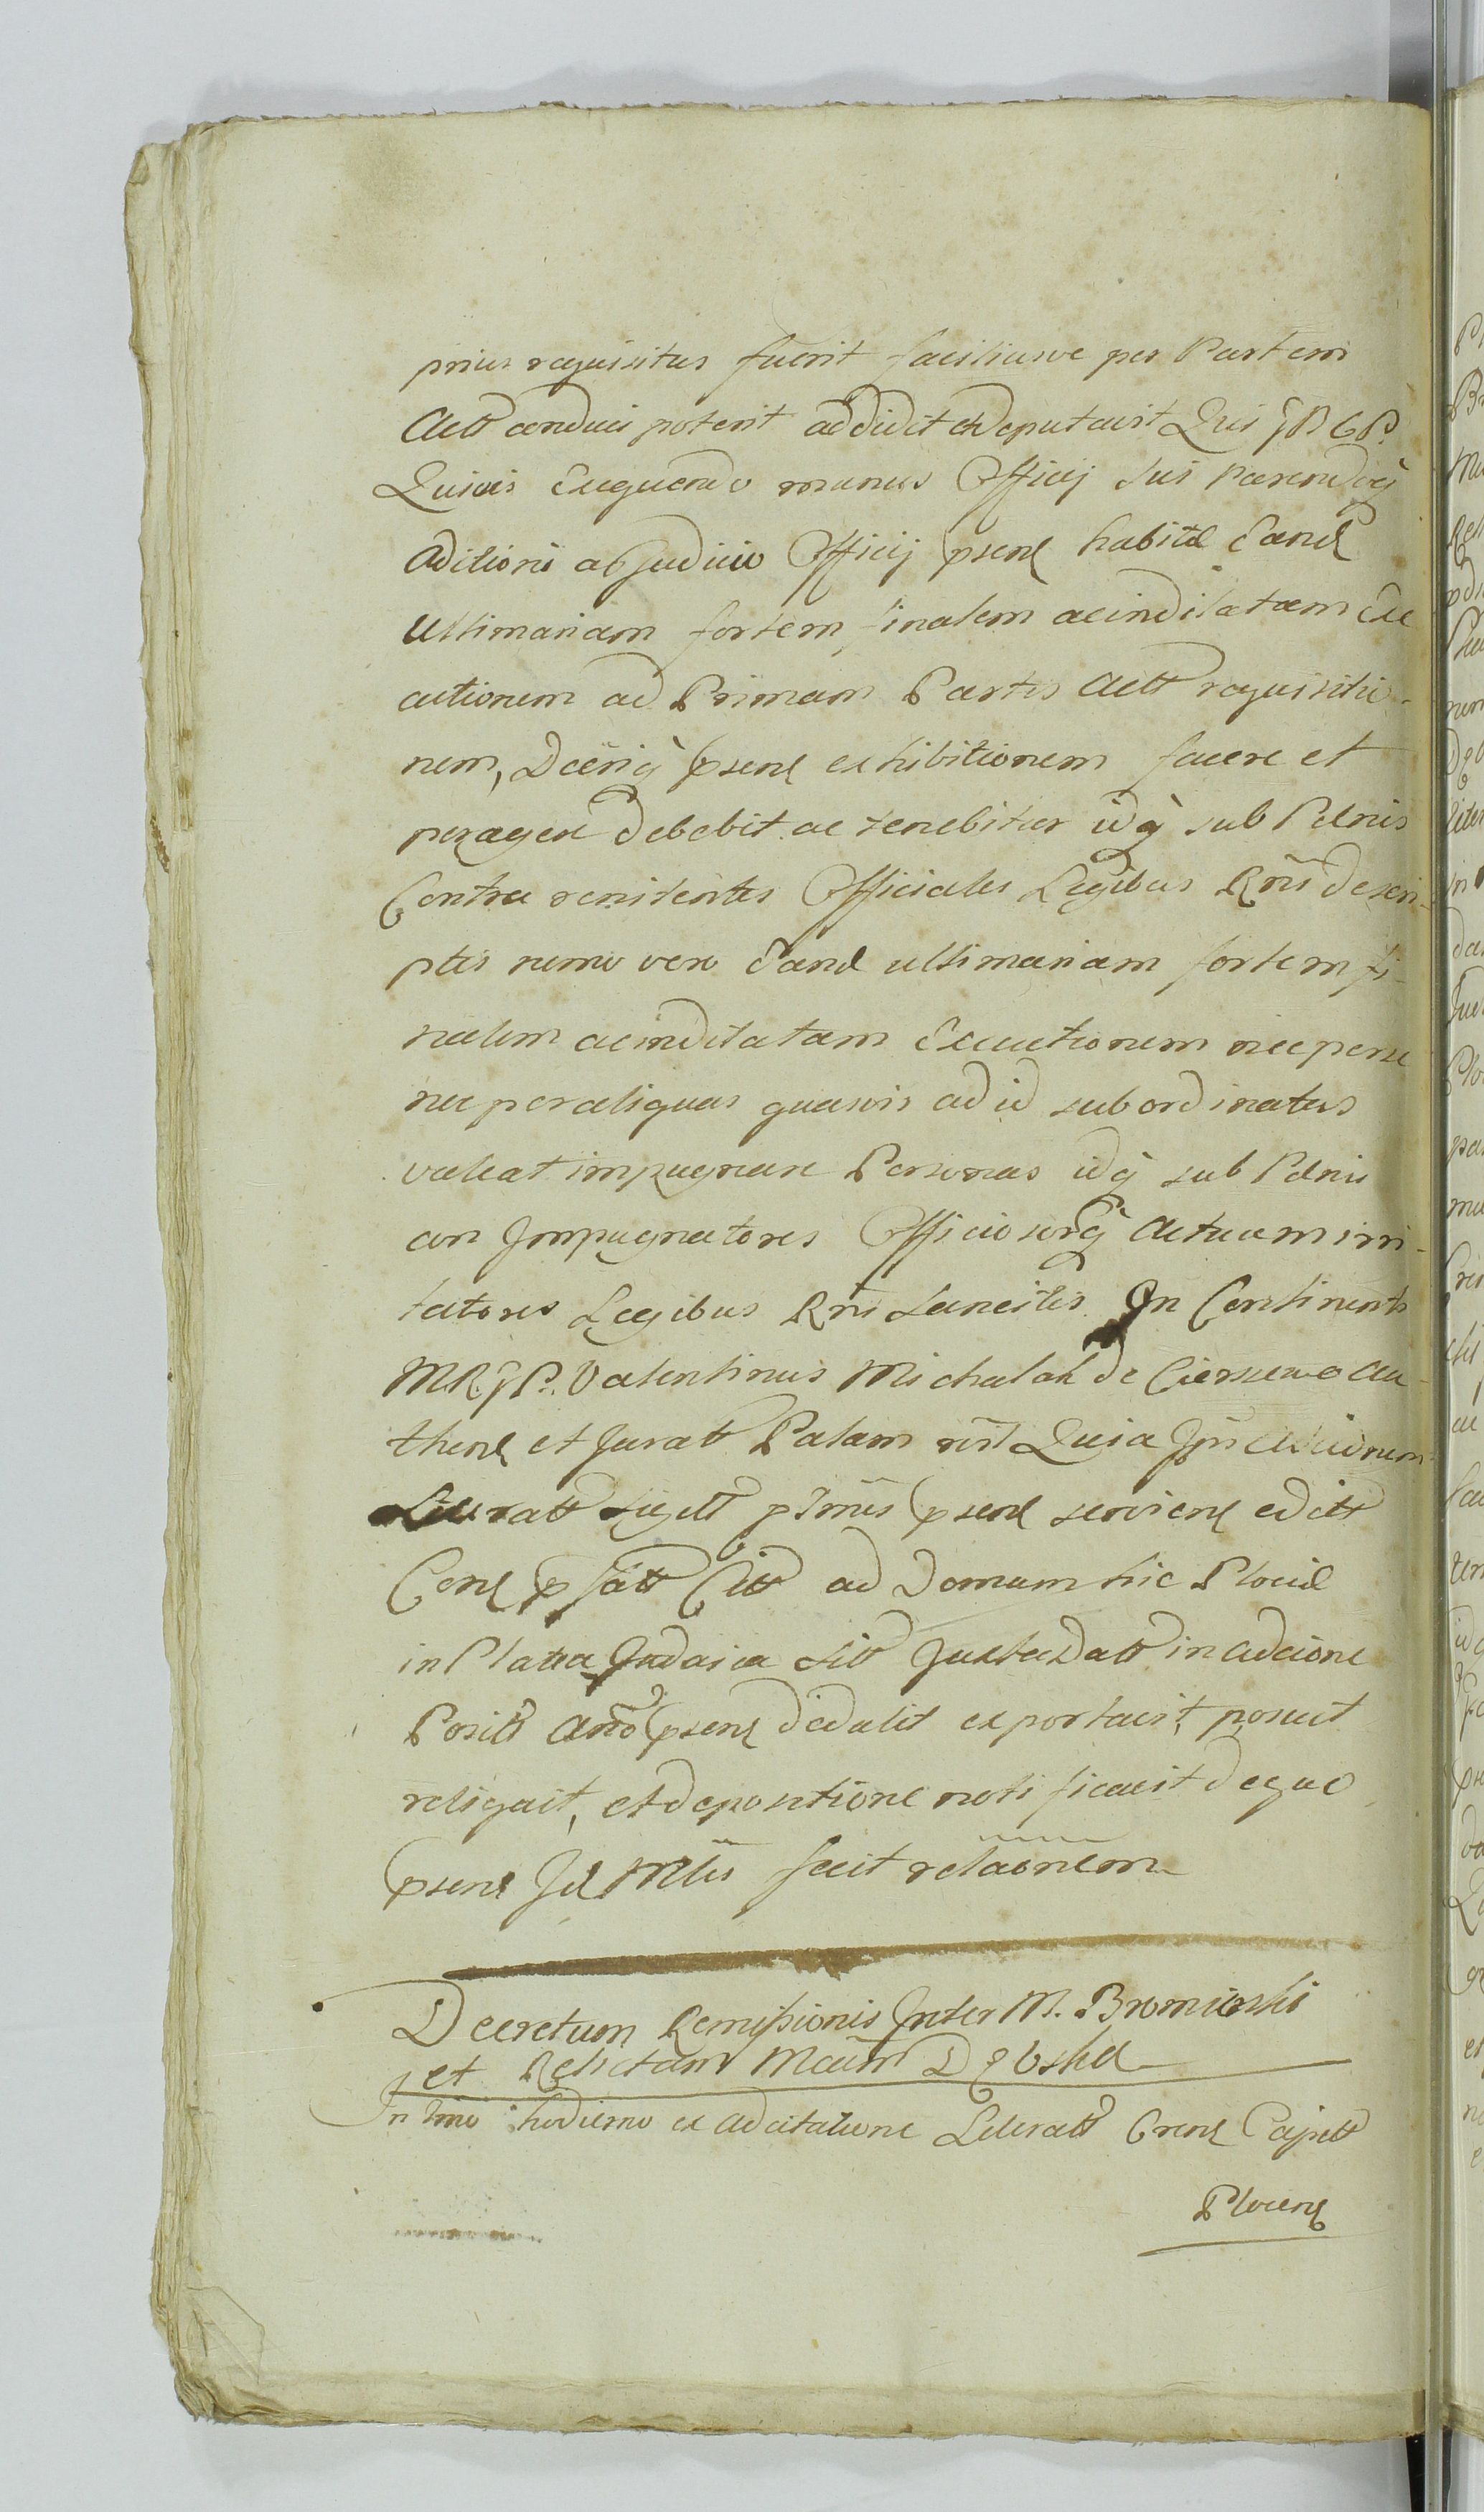 prius requisitus fuerit faciliusve per Partem
Actt conduci poterit addidit et deputavit Quis J B G P.
Quivis Exequendo munus Officij sui Parendoq
aditioni ab Judicio Officij psens habitæ Eand
Ultimariam fortem finalem ac indilatam Exe
cutionem ad Primam Partis Actt requisitio-
nem, Decrīq psens exhibitionem facere et
peragere debebit ac tenebitur idq sub Pænis
Contra renitentes Officiales Legibus Rni descri-
ptis nemo vero Eand ultimariam fortem fi-
nalem ac indilatam Executionem nec per se
nec per aliquas quasvis ad id subordinatas
valeat impugnare Personas idq sub Pænis
con Impugnatores Officiosorq Actuum irri-
tatores Legibus Rni sancitis In Continenti
M.R.J P. Valentinus Michalak de Ciersewo Au
thens et Juratt Palam rnt Quia Jpse
Literatt Sigill pTmis psens serviens edictt
Cons psatt Citt ad Domum hic Plociæ
in Platea Judaica Sitt Juxta Datt in adcione
Positt Anno psens detulit exportavit, posuit
reliquit, et de positione notificavit de quo
psens Jd Mtis fecit relaonem
Decretum Remissionis Inter M. Bromierski
et Relictam Macim Dębska
In Tmo hodierno ex Adcitatione Literatt Crens Capitt
Plocens